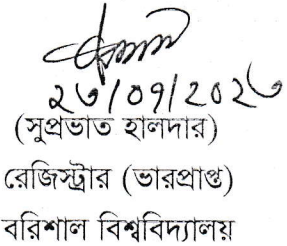 ২৩/০৭/২০২৩
(সুপ্রভাত হালদার)
রেজিস্ট্রার (ভারপ্রাপ্ত)
বরিশাল বিশ্ববিদ্যালয়